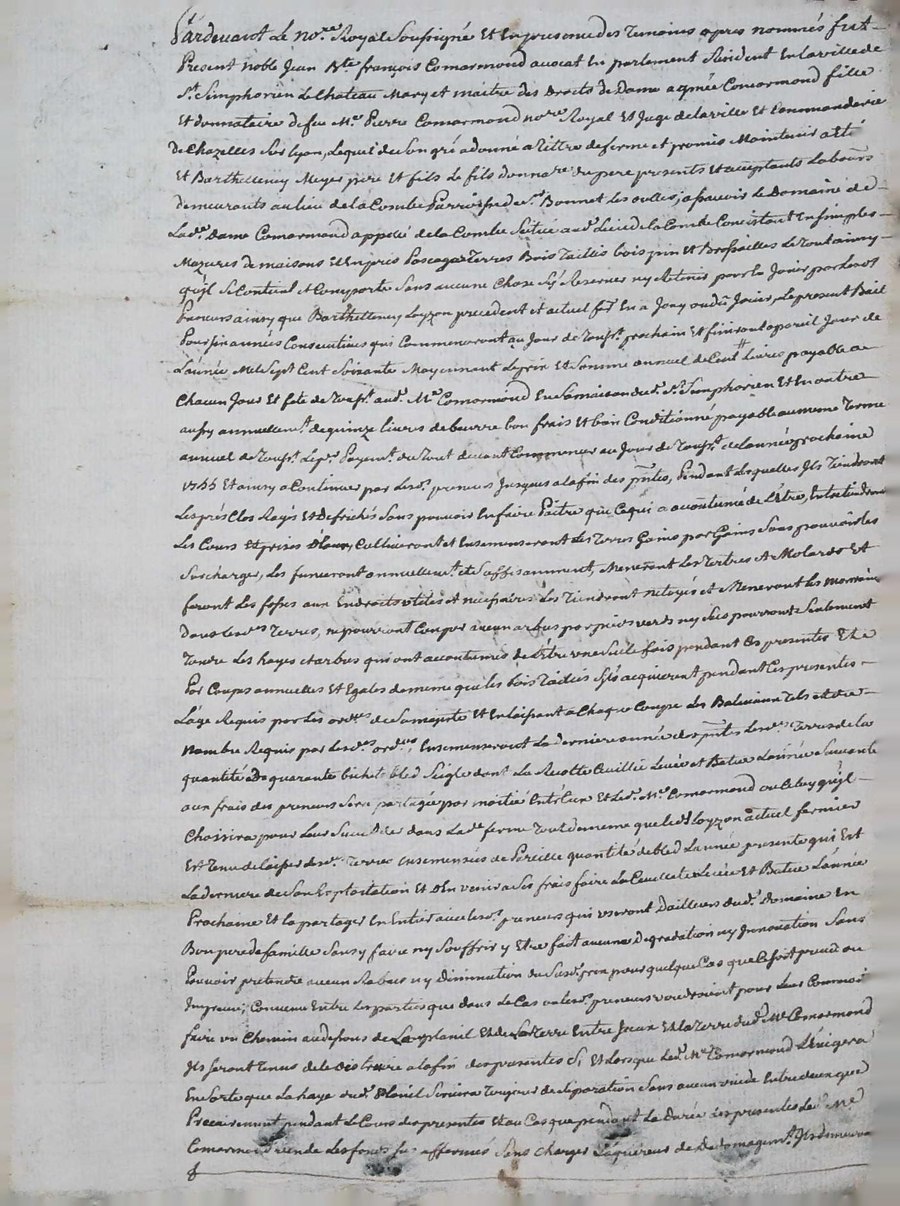 Pardevant Le no.re Royal Soussigné Et En presence des Temoins apres nommés fut
Present noble Jean B.te françois Comarmond avocat En parlement Resident En la ville de
S.t Simphorien Le Chateau Mary et maitre des Droits de Dame agnée Comarmond fille
Et donnataire de feu M.re Pierre Comarmond no.re Royal Et Juge de la ville Et Commanderie
De Chazelles Sur lyon, Lequel de Son gré a donné a Tittre de ferme et promis Maintenir a
Et Barthellemy Meyer pere Et fils Le fils donn.re du pere presents Et acceptants Labours
demeurants au lieu de la Combe Parroisse de S.t Bonnet Les oulles, a sçavoir Le Domaine de
Lad.e Dame Comarmond appellé de la Combe Scitué aud. Lieu de la Combe Consistant En Simples
Mazures de maisons Et En prés Pascages Terres Bois Taillis bois pin et Brossailles Le Tout ainsy
qu'jl Se Contient et Comporte Sans aucune Chose S'y Reserver ny Retenir pour La Jouir par Lesd.
Preneurs ainsy que Barthellemy Loyzon precedent et actuel fer.r En a Jouy ou dû Jouir, Le present Bail
Pour six années Consecutives qui Commenceront au Jour de Touss.t prochain Et finiront a pareil Jour de
L'année Mil Sept Cent Soixante Moyennant Le prix Et Somme annuel de Cent Livres payable a
Chacun Jour Et fete de Touss.t aud. M.e Comarmond En Sa maison de S.t Simphorien Et En outre
aussy annuellem.t de quinze livres de beurre bon frais Et bien Conditionné payable au meme Terme
annuel de Touss.t Le p.r Payem.t du Tout devant Commencer au Jour de Touss.t de L'année prochaine
1755 Et ainsy a Continuer par Lesd. preneurs Jusques a la fin des p.ntes, Pendant Lesquelles Jls Tiendront
Les prés Clos Rayis Et Defrichés Sans pouvoir En faire Paitre que Ce qui a accoutumé de L'être, Entretiendront
Les Cours Et prises d'Eaux, Cultiveront et Ensemenceront Les Terres Gains par Gains Sans pouvoir Les
Surcharger, Les fumeront annuellem.t et Suffisamment, Meneront Les Tertres et Molards Et
feront Les fosses aux Endroits utiles et necessaires Les Tiendront netoyés et Meneront Les
Dans Lesd.es Terres, ne pourront Couper aucun arbre par pied verds ny Secs pourront Seulement
Tondre Les hayes et arbres qui ont accoutumés de L'être une Seule fois pendant Ces presentes Et Le
Par Coupes annuelles Et Egales de meme que les bois Taillis S'jls acquierent pendant Ces presentes
L'age Requis par Les ord.es de Sa majesté Et En laissant a Chaque Coupe Les Baliveaux Tels et de
nombre Requis par Lesd.es ord.es, Ensemenceront La derniere année des p.ntes Lesd.es Terres de la
quantité De quarante bichets bled Seigle dont La Recolte Cuillie Levée et Batue L'année Suivante
aux frais des preneurs Sera partagée par moitié Entr'Eux Et Led. M.e Comarmond ou Celuy qu'jl
Choisira pour Leur Succeder dans Lad.e ferme Tout de meme que led. Loyzon actuel fermier
Est Tenu de laisser Lesd. Terres Ensemencées de Pareille quantité de bled L'année presente qui Est
La derniere de Son Exploitation Et d'En venir a Ses frais faire La Cueillete Levée Et Batue L'année
Prochaine Et La partager En Entier avec Lesd. preneurs qui useront d'ailleurs dud. Domaine En
Bon pere de famille Sans y faire ny Souffrir y Etre fait aucune Degradation ny Innovation Sans
Pouvoir pretendre aucun Rabais ny Diminution du Susd. prix pour quelque Cas que Ce soit preuu ou
Impreuu; Convenu Entre Les parties que dans Le Cas ou Lesd. preneurs voudroient pour Leur Commod.
faire un Chemin au dessous de La Et de La Terre Entre Jceux Et La Terre dud. M.e Comarmond
Jls Seront Tenus de le detruire a la fin des presentes Si Et Lorsque Led. M.e Comarmond L'Exigera
En Sorte que La haye dud. Servira Toujours de Separation Sans aucun vuide Entre deux que
Precairement pendant Le Cours des presentes Et au Cas que pendant La Durée des presentes Led. M.e
Comarmond vende Les fonds Sus affermés Sans Charger L'aquereur de Dedomagem.t Jls demeure